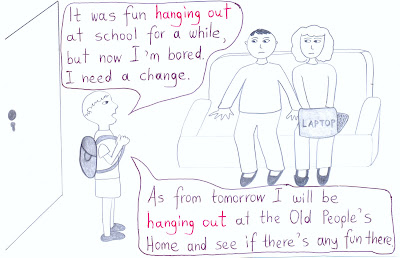 It was fun hanging out
at school for a while,
but now I'm bored.
I need a change.
LAPTOP
As from tomorrow I will be
hanging out at the Old People's
Home and see if there's any fun there.